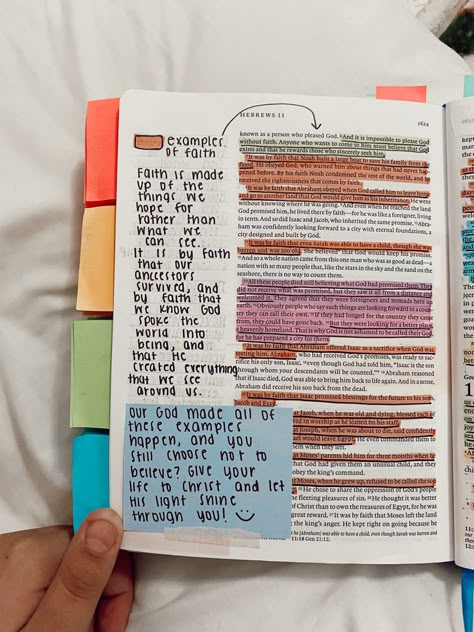 HEBREWS 11
1624
examples
of faith
Faith is made
up of the
things we
hope for
rather than
what we
can see.
It is by faith
that our
ancestors
survived, and
by faith that
we know God
spoke the
world into
being, and
that He
created everything
that we see
around us.
our God made all of
these examples
happen, and you
still choose not to
believe? Give your
life to Christ and let
His light shine
through you!
known as a person who pleased God. 6And it is impossible to please God
without faith. Anyone who wants to come to him must believe that God
exists and that he rewards those who sincerely seek him.
7It was by faith that Noah built a large boat to save his family from the
flood. He obeyed God, who warned him about things that had never hap-
pened before. By his faith Noah condemned the rest of the world, and he
received the righteousness that comes by faith.
8It was by faith that Abraham obeyed when God called him to leave home
and go to another land that God would give him as his inheritance. He went
without knowing where he was going. 9And even when he reached the land
God promised him, he lived there by faith—for he was like a foreigner, living
in tents. And so did Isaac and Jacob, who inherited the same promise. 10Abra-
ham was confidently looking forward to a city with eternal foundations, a
city designed and built by God.
11It was by faith that even Sarah was able to have a child, though she was
barren and was too old. She believed that God would keep his promise.
12And so a whole nation came from this one man who was as good as dead—a
nation with so many people that, like the stars in the sky and the sand on
the seashore, there is no way to count them.
13All these people died still believing what God had promised them. They
did not receive what was promised, but they saw it all from a distance and
welcomed it. They agreed that they were foreigners and nomads here on
earth. 14Obviously people who say such things are looking forward to a coun-
try they can call their own. 15If they had longed for the country they came
from, they could have gone back. 16But they were looking for a better place,
a heavenly homeland. That is why God is not ashamed to be called their God,
for he has prepared a city for them.
17It was by faith that Abraham offered Isaac as a sacrifice when God was
testing him. Abraham, who had received God's promises, was ready to sac-
rifice his only son, Isaac, 18even though God had told him, "Isaac is the son
through whom your descendants will be counted." 19Abraham reasoned
that if Isaac died, God was able to bring him back to life again. And in a sense,
Abraham did receive his son back from the dead.
20It was by faith that Isaac promised blessings for the future to his sons,
Jacob and Esau.
Jacob, when he was old and dying, blessed each of
ed in worship as he leaned on his staff.
Joseph, when he was about to die, said confidently
ael would leave Egypt. He even commanded them
them when they left.
Moses' parents hid him for three months when
that God had given them an unusual child, and they
obey the king's command.
Moses, when he grew up, refused to be called the son
He chose to share the oppression of God's people
the fleeting pleasures of sin. 26He thought it was better
of Christ than to own the treasures of Egypt, for he was
great reward. 27It was by faith that Moses left the land
the king's anger. He kept right on going because he